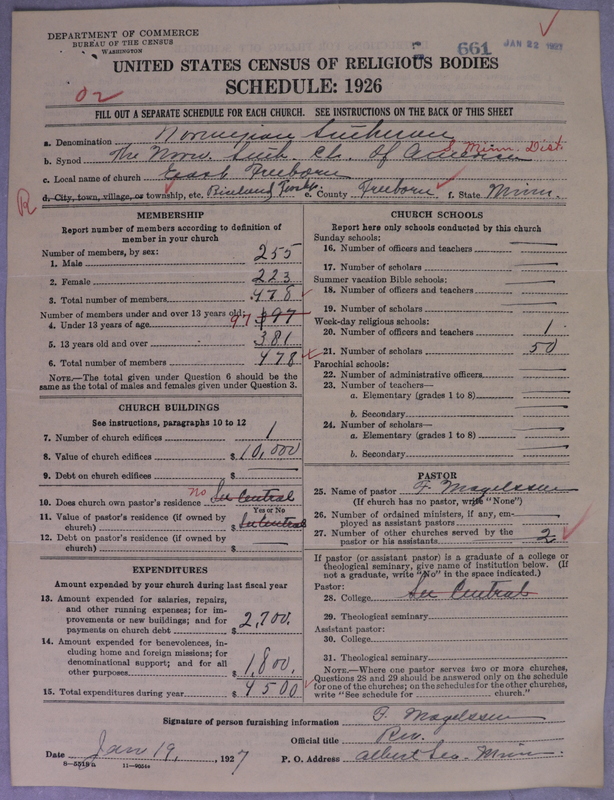 DEPARTMENT OF COMMERCE
BUREAU OF THE CENSUS
WASHINGTON
661 JAN 22 1927
UNITED STATES CENSUS OF RELIGIOUS BODIES
SCHEDULE: 1926
02
FILL OUT A SEPARATE SCHEDULE FOR EACH CHURCH. SEE INSTRUCTIONS ON THE BACK OF THIS SHEET
a. Denomination Norwegian Lutheran
b. Synod The Norw. Luth. Ch. of America S. Minn. Dist.
c. Local name of church East Freeborn
R d. City, town, village, or township, etc. e. County Freeborn f. State Minn.
MEMBERSHIP
Report number of members according to definition of
member in your church
Number of members, by sex:
1. Male 255
2. Female 223
3. Total number of members 478
Number of members under and over 13 years old:
4. Under 13 years of age 97 97
5. 13 years old and over 381
6. Total number of members 478
NOTE.—The total given under Question 6 should be the
same as the total of males and females given under Question 3.
CHURCH BUILDINGS
See instructions, paragraphs 10 to 12
7. Number of church edifices 1
8. Value of church edifices $ 10,000
9. Debt on church edifices $
10. Does church own pastor's residence no See Central
Yes or No
11. Value of pastor's residence (if owned by
church) $ See Central
12. Debt on pastor's residence (if owned by
church) $
EXPENDITURES
Amount expended by your church during last fiscal year
13. Amount expended for salaries, repairs,
and other running expenses; for im-
provements or new buildings; and for
payments on church debt $ 2,700.
14. Amount expended for benevolences, in-
cluding home and foreign missions; for
denominational support; and for all
other purposes $ 1,800.
15. Total expenditures during year $ 4500
CHURCH SCHOOLS
Report here only schools conducted by this church
Sunday schools:
16. Number of officers and teachers
17. Number of scholars
Summer vacation Bible schools:
18. Number of officers and teachers
19. Number of scholars
Week-day religious schools:
20. Number of officers and teachers 1.
21. Number of scholars 50
Parochial schools:
22. Number of administrative officers
23. Number of teachers—
a. Elementary (grades 1 to 8)
b. Secondary
24. Number of scholars—
a. Elementary (grades 1 to 8)
b. Secondary
PASTOR
25. Name of pastor F. Magelssen
(If church has no pastor, write "None")
26. Number of ordained ministers, if any, em-
ployed as assistant pastors
27. Number of other churches served by the
pastor or his assistants 2
If pastor (or assistant pastor) is a graduate of a college or
theological seminary, give name of institution below. (If
not a graduate, write "No" in the space indicated.)
Pastor:
28. College See Central
29. Theological seminary
Assistant pastor:
30. College
31. Theological seminary
NOTE.—Where one pastor serves two or more churches,
Questions 28 and 29 should be answered only on the schedule
for one of the churches; on the schedules for the other churches,
write "See schedule for church."
Signature of person furnishing information F. Magelssen
Official title Rev.
Date Jan 19, 1927 P. O. Address Albert Lea, Minn.
8—5518a 11—9054a